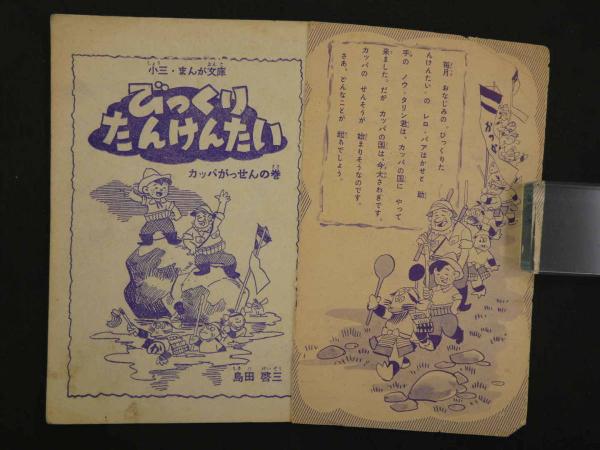 小三・まんが文庫
びっくり
たんけんたい
カッパがっせんの巻
島田 啓三
毎月 おなじみの、びっくりた
んけんたい の レロ・パアはかせと 助
手の ノウ・タリン君は、カッパの国に やって
来ました。だが カッパの国は、今 大さわぎです。
カッパの せんそうが 始まりそうなのです。
さあ、どんなことが 起るでしょう。